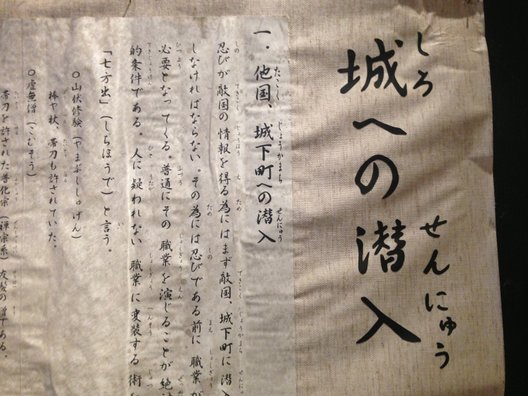 しろ せんにゅう
城への潜入
一．他国、城下町への潜入
忍びが敵国の情報を得る為にはまず敵国、城下町に潜
しなければならない。その為には忍びである前に職業が
必要となってくる。普通にその職業を演じることが絶
的条件である。人に疑われない職業に変装する術
「七方出」（しちほうで）と言う。
○山伏修験（やまぶししゅげん）
棒や杖、帯刀も許されていた。
○虚無僧（こむそう）
帯刀を許された普化宗（禅宗系）有髪の僧である。